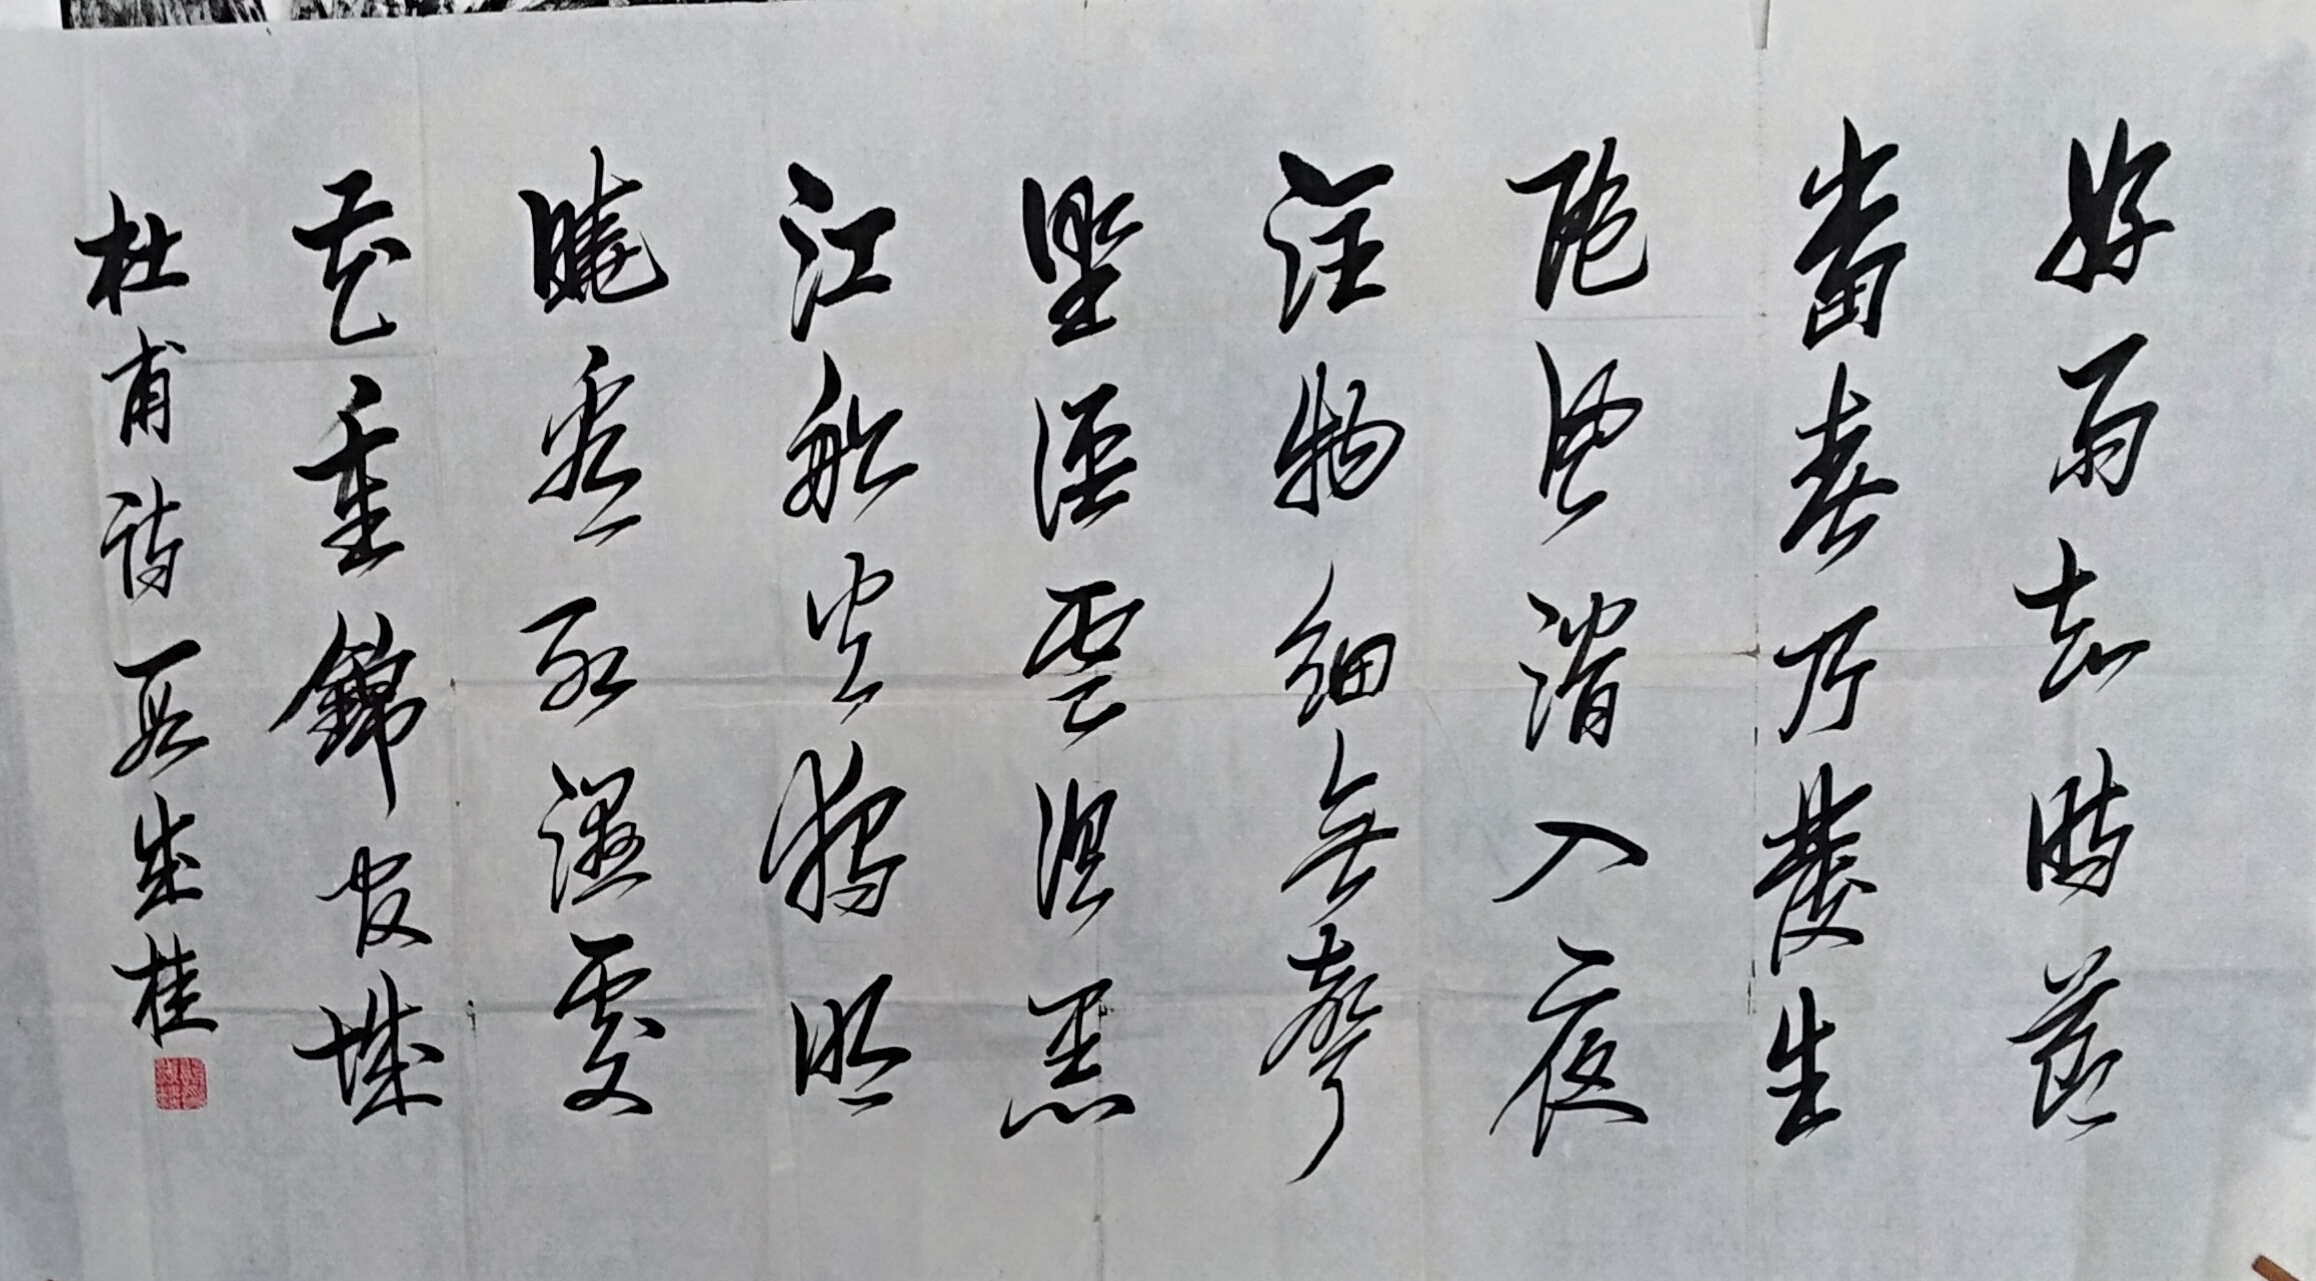 好雨知時節
當春乃發生
隨風潛入夜
潤物細無聲
野徑雲俱黑
江船火獨明
曉看紅濕處
花重錦官城
杜甫詩 段成桂